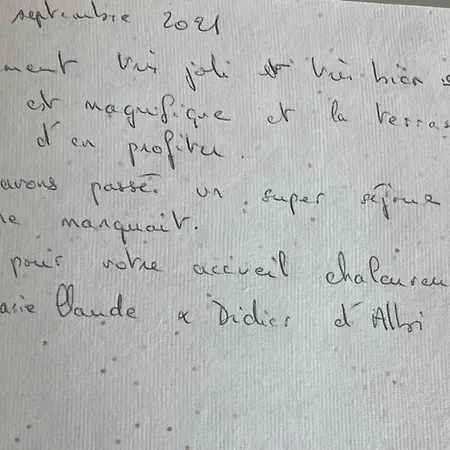 septembre 2021
ment très joli et très bien
est magnifique et la terras
d'en profiter.
avons passé un super séjour
ne manquait.
pour votre accueil chaleureu
arie Claude & Didier d'Albi